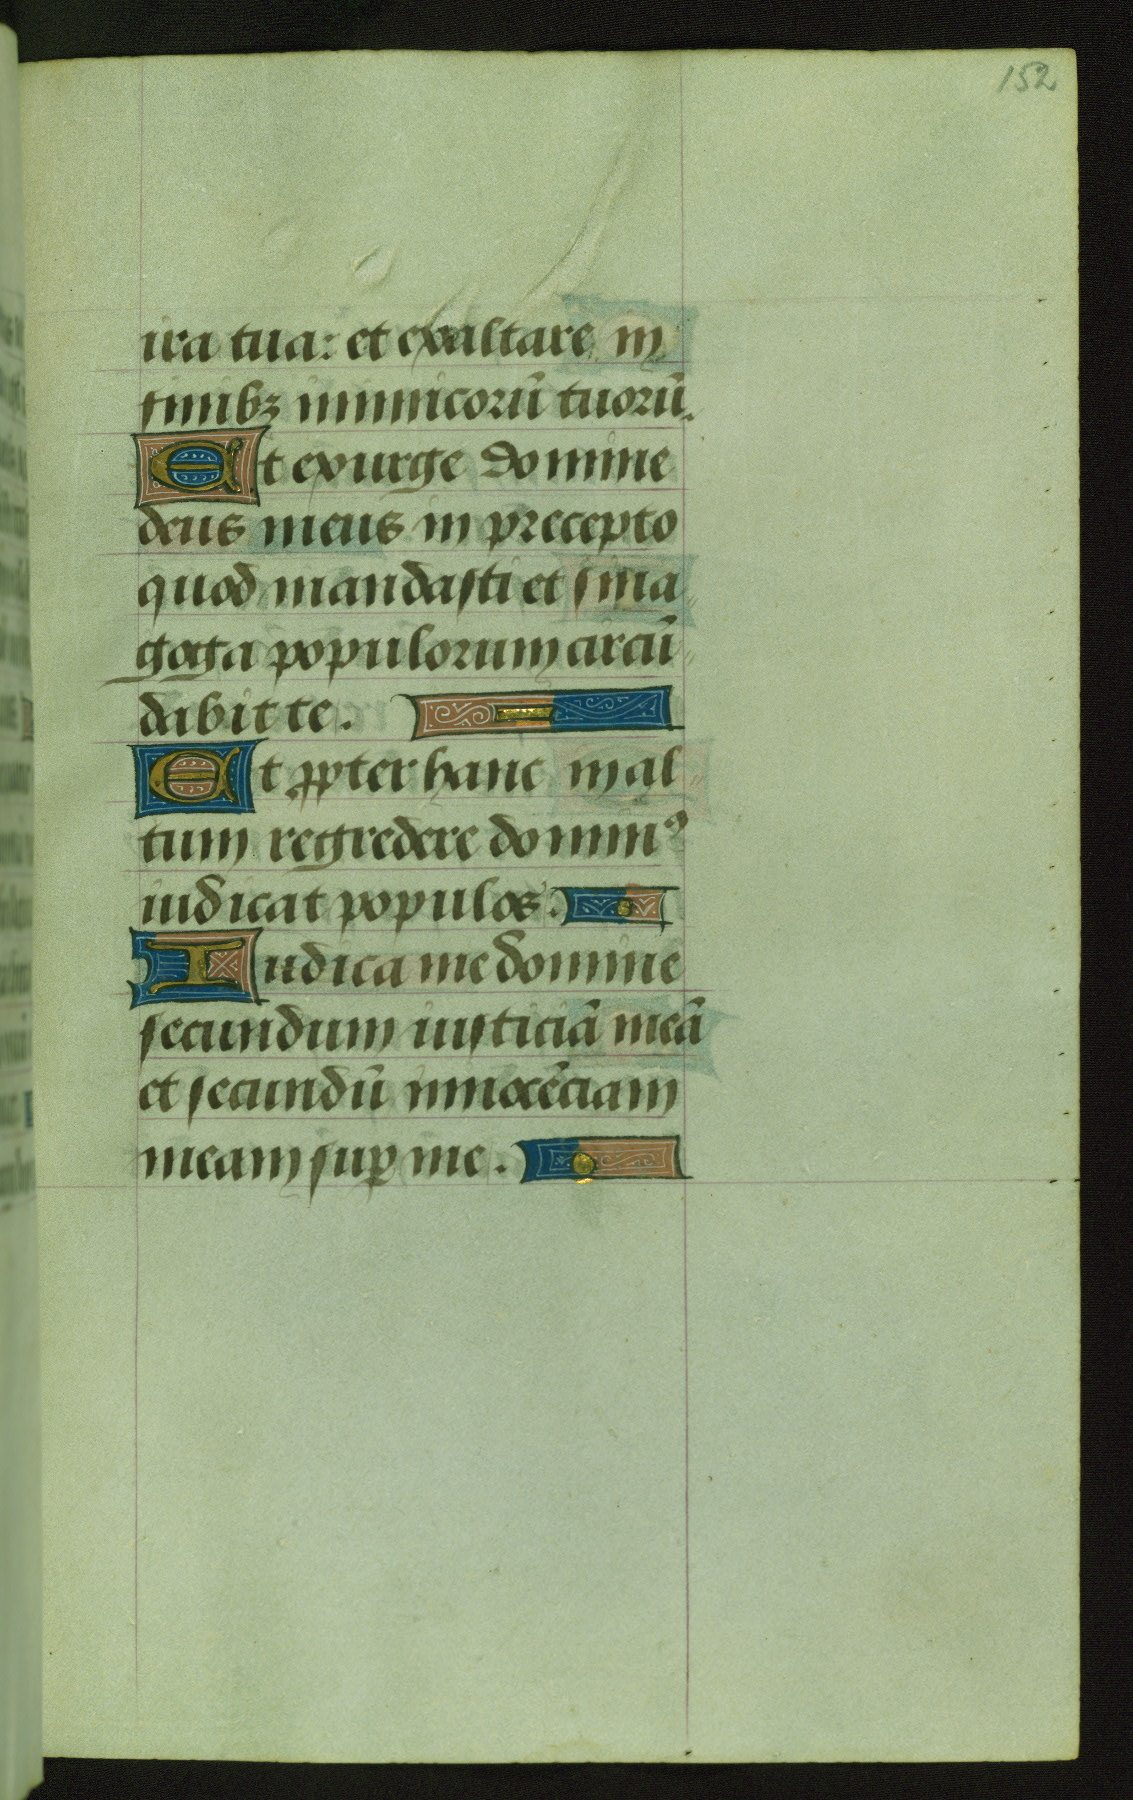 152
ira tua: et exaltare in
finibꝫ inimicorū tuorū.
Et exurge domine
deus meus in precepto
quod mandasti et sina
goga populorum circū
dabit te.
Et ꝓpter hanc in al
tum regredere dominꝰ
iudicat populos.
Iudica me domine
secundum iusticiā meā
et secundū innocēciam
meam suꝑ me.